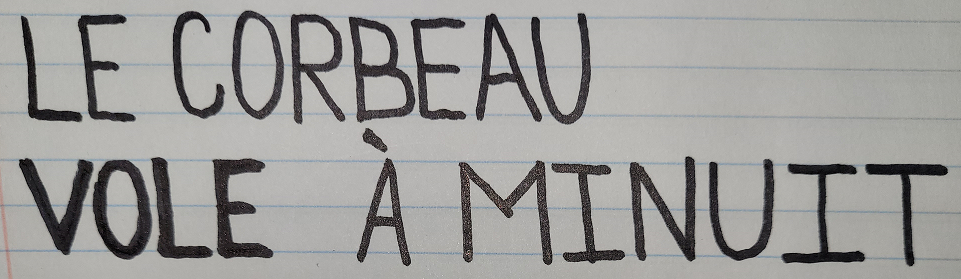 LE CORBEAU
VOLE À MINUIT